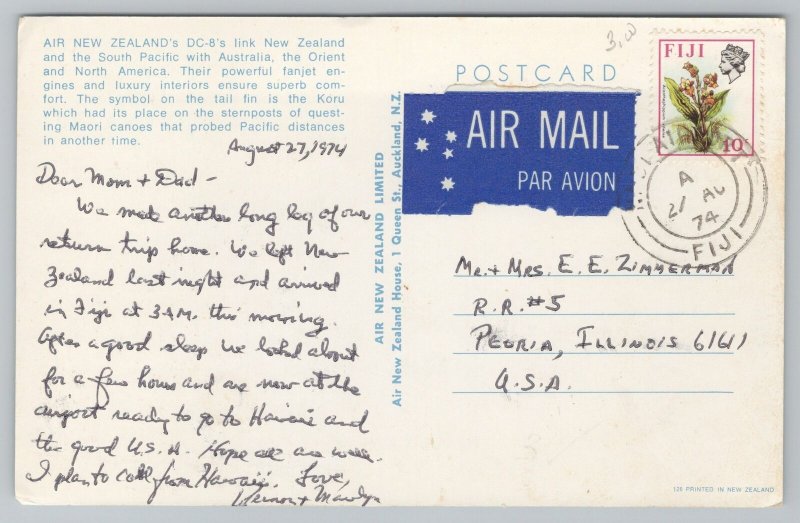 AIR NEW ZEALAND's DC-8's link New Zealand
and the South Pacific with Australia, the Orient
and North America. Their powerful fanjet en-
gines and luxury interiors ensure superb com-
fort. The symbol on the tail fin is the Koru
which had its place on the sternposts of quest-
ing Maori canoes that probed Pacific distances
in another time.
August 27, 1974
Dear Mom + Dad -
We made another long leg of our
return trip home. We left New
Zealand last night and arrived
in Fiji at 3 AM. this morning.
After a good sleep we looked about
for a few hours and are now at the
airport ready to go to Hawaii and
the good U.S.A. Hope all are well.
I plan to call from Hawaii. Love,
Vernon + Marilyn
AIR NEW ZEALAND LIMITED
Air New Zealand House, 1 Queen St., Auckland, N.Z.
3.00
POSTCARD
AIR MAIL
PAR AVION
FIJI
10
A
74
FIJI
Mr. + Mrs. E. E. Zimmerman
R.R. #5
Peoria, Illinois 61611
U.S.A.
126 PRINTED IN NEW ZEALAND